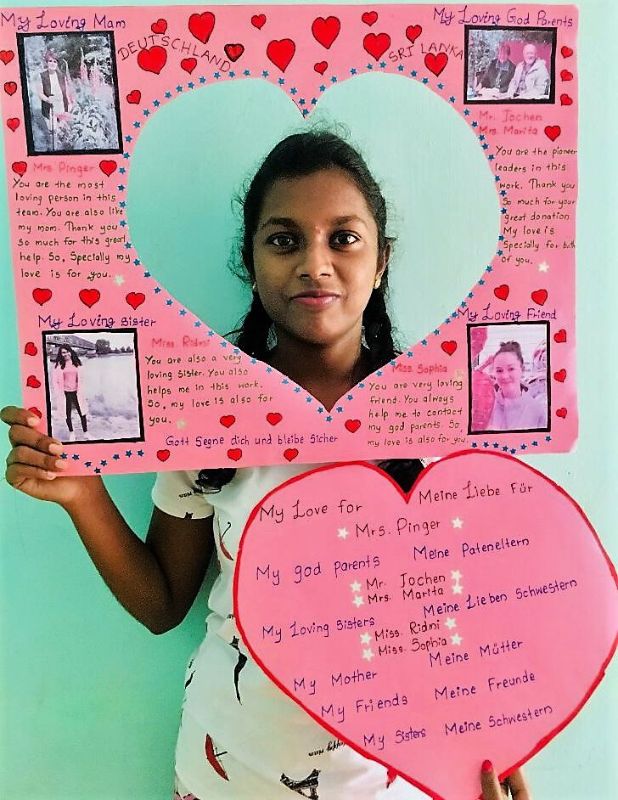 My Loving Mam
DEUTSCHLAND
SRI LANKA
My Loving God Parents
Mrs Pinger
You are the most
loving person in this
team. You are also like
my mom. Thank you
so much for this great
help. So, Specially my
love is for you.
Mr. Jochen
Mrs. Marita
You are the pioneer
leaders in this
work. Thank you
so much for your
great donation.
My love is
Specially for both
of you.
My Loving Sister
Miss. Ridni
You are also a very
loving Sister. You also
helps me in this work.
So, my love is also for
you.
My Loving Friend
Miss. Sophia
You are very loving
friend. You always
help me to contact
my god parents. So,
my love is also for you.
Gott Segne dich und bleibe Sicher
My Love for Meine Liebe Für
Mrs. Pinger
My god parents Meine Pateneltern
Mr. Jochen
Mrs. Marita
My Loving Sisters Meine Lieben Schwestern
Miss. Ridni
Miss. Sophia
My Mother Meine Mütter
My Friends Meine Freunde
My Sisters Meine Schwestern